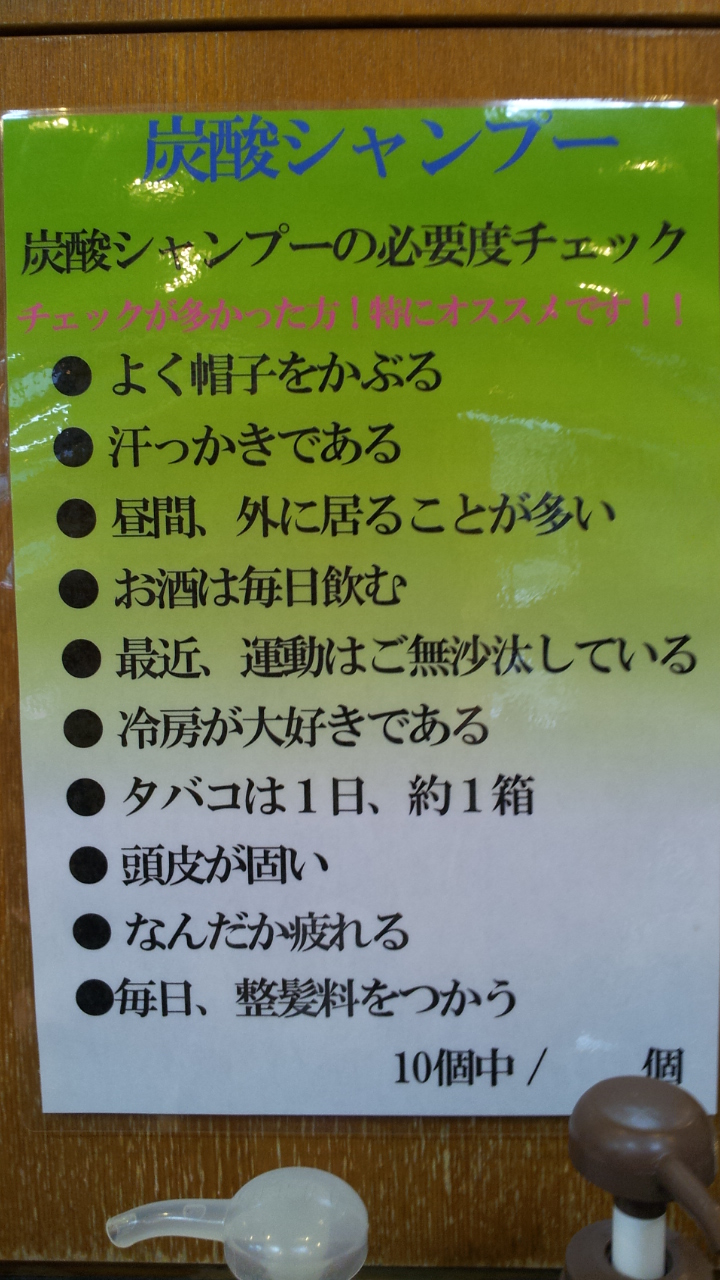 炭酸シャンプー
炭酸シャンプーの必要度チェック
チェックが多かった方！特にオススメです！！
● よく帽子をかぶる
● 汗っかきである
● 昼間、外に居ることが多い
● お酒は毎日飲む
● 最近、運動はご無沙汰している
● 冷房が大好きである
● タバコは１日、約１箱
● 頭皮が固い
● なんだか疲れる
●毎日、整髪料をつかう
10個中 / 個